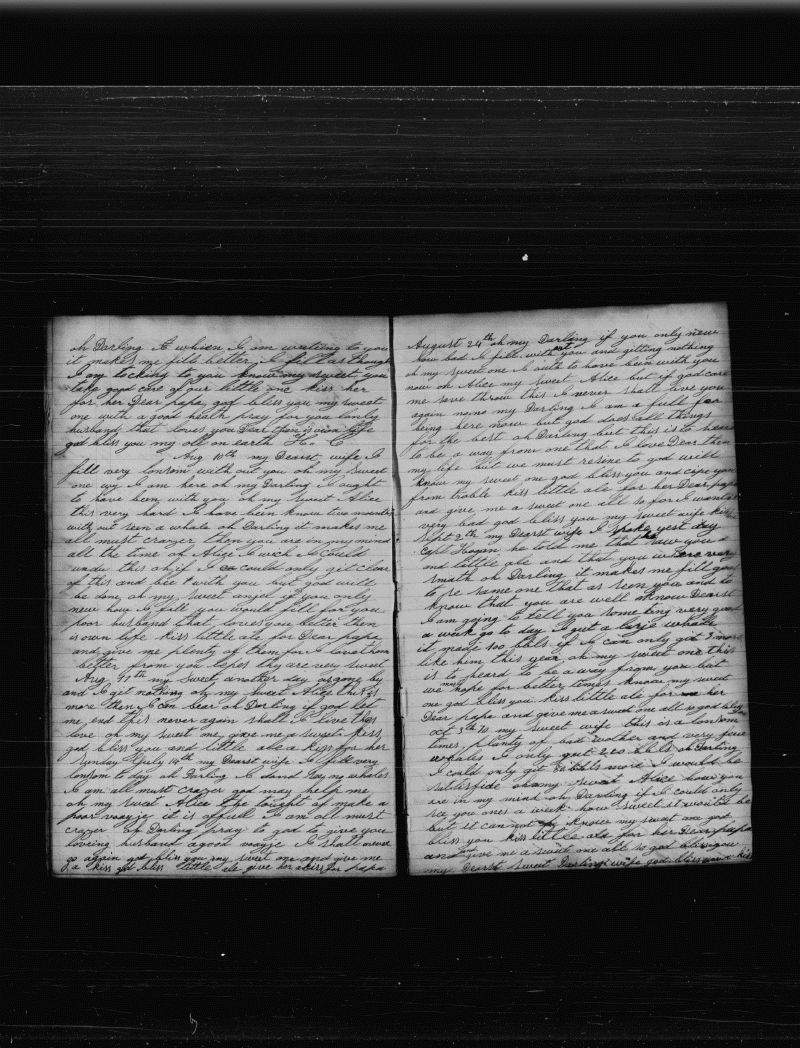 oh Darling it when I am writing to you
it makes me fill better I fill as though
I am tocking to you know my sweet you
take good care of our little one kiss her
for her Dear papa god bless you my sweet
one with a good heath pray for you lonly
husband that loves you Dear then is own life
god bless you my oll on earth
Aug 10th my Dearst wife I
fill very lonsom with out you oh my Sweet
one wy I am here oh my Darling I ought
to have been with you oh my sweet Alice
this very hard I have been know two months
with out seen a whale oh Darling it makes me
all must crazer then you are in my mind
all the time oh Alice I wich I could
this oh if I could only git clear
of this and bee with you but god will
be done oh my sweet angel if you only
new how I fill you would fill for you
poor husband that loves you better then
is own life kiss little ale for Dear papa
and give me plenty of them for I love them
better from you lepes they are very sweet
Aug 11th my Sweet another day as gone by
and I get nothing oh my sweet Alice this is
more then I can bear oh Darling if god let
me end this never again shall I live this
love oh my sweet one give me a sweet kiss
god bless you and little ale a kiss for her
Sunday July 14th my Dearst wife I fill very
lonsom to day oh Darling I no whales
I am all must crazer god may help me
oh my sweet Alice tought of make a
poor voayje it is offull I am all must
crazer oh Darling pray to god to give you
loveing husband a good voayje I shall never
go again god bless you my sweet one and give me
a kiss god bless little ale give her a kiss for papa
August 24th oh my Darling if you only new
how bad I fill with out you and gitting nothing
oh my sweet one I auto to have been with you
now oh Alice my sweet Alice but if god care
me save throw this I never shall live you
again no no my Darling I am a full for
being here now but god does all things
for the best oh Darling but this is to heard
to be a way from one that I love Dear then
my life but we must resine to god will
know my sweet one god bless you and cipe you
from troble kiss little ale for her Dear papa
and give me a sweet one all so for I wants it
very bad god bless you my sweet wife kiss
Sept 2th my Dearst wife I spoke yest day
Capt Hogan he told me that he saw you
and little ale and that you where very
smath oh Darling it makes me fill good
to se some one that as seen you and to
know that you are well know Dearst
I am going to tell you some ting very good
a week go to day I gut a large whale
it made 100 bbls if I can only git 3 more
like him this year oh my sweet one this
is to heard to be a way from you but
we must hope for better times know my sweet
one god bless you kiss little ale for me her
Dear papa and give me a sweet one all so god bless you
Oct 3th 10 my sweet wife this is a lonsom
times plenty of bad wether and very few
whales I only gut 200 bbls oh Darling
I could only git bbls more I would be
sattesfide oh my sweet Alice how you
are in my mind oh Darling if I could only
see you ones a week how sweet it would be
but it can not be know my sweet one god
bless you kiss little ale for her Dear papa
and give me a sweet one all so god bless you
my Dearst sweet Darling wife god bless you a kiss